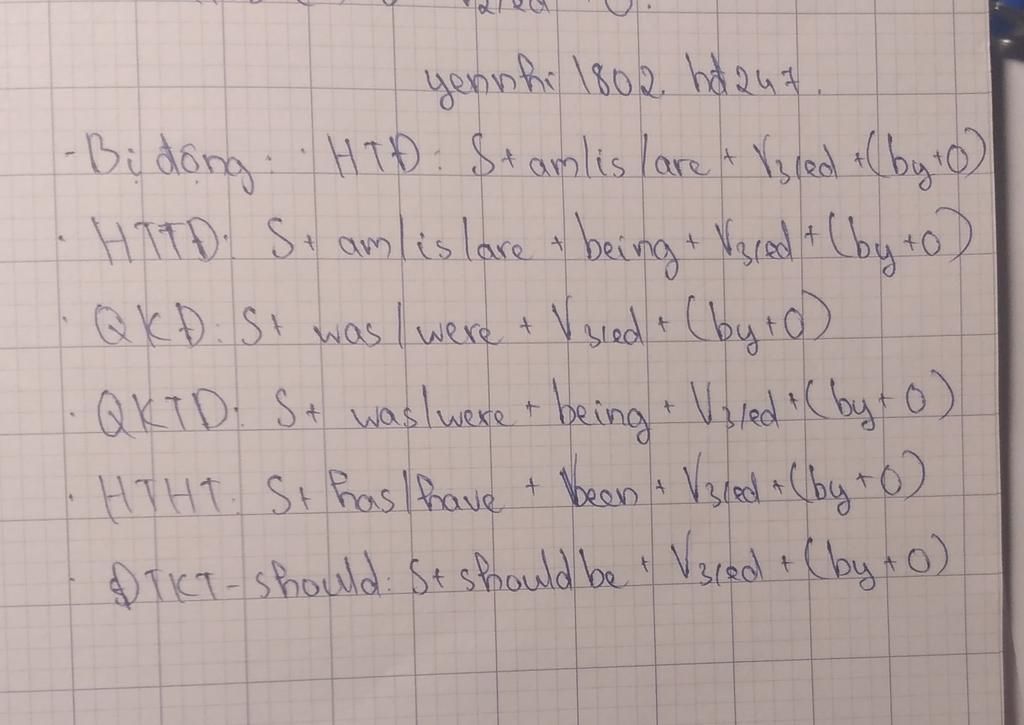 V3/ed O.
yennhi 1802. hd247.
- Bị động: · HTĐ: S+ am/is/are + V3/ed + (by+O)
· HTTD: S+ am/is/are + being + V3/ed + (by+O)
· QKĐ: S+ was/were + V3/ed + (by+O)
· QKTD: S+ was/were + being + V3/ed + (by+O)
· HTHT: S+ has/have + been + V3/ed + (by+O)
· ĐTKT - should: S+ should be + V3/ed + (by+O)